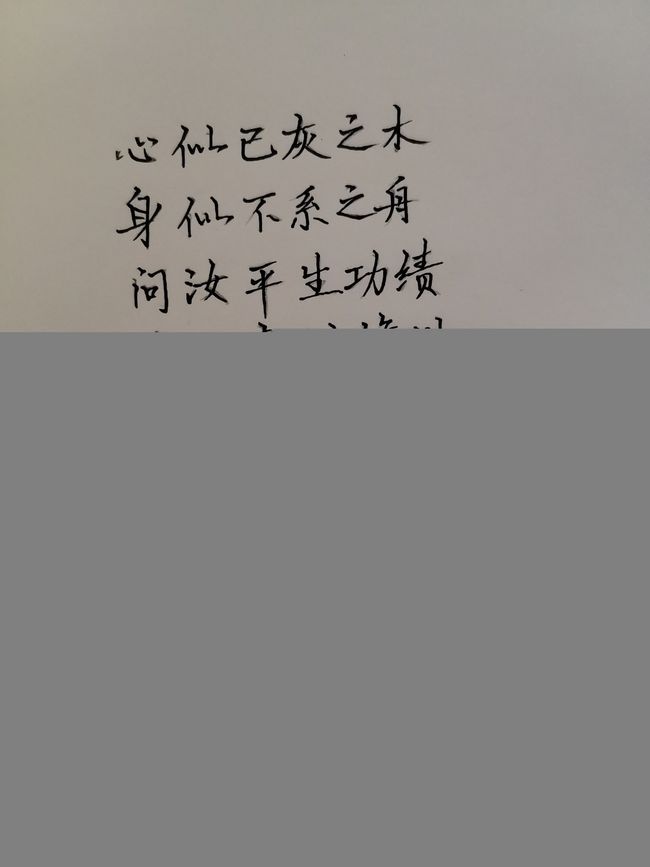 心似已灰之木
身似不系之舟
问汝平生功绩